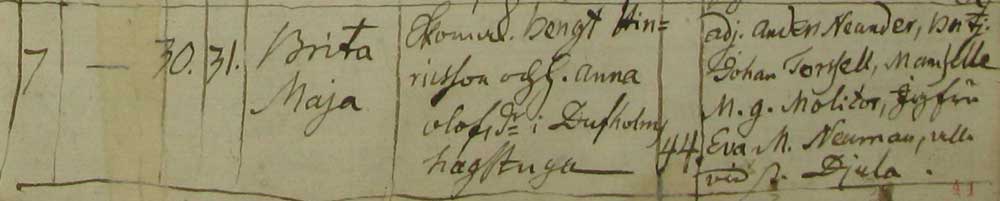 7 — 30. 31. Brita
Maja
Skomak. Bengt Hin=
ricsson och H. Anna
Olofsdr i Dufholms
hagstuga
44.
adj. Anders Neander,
Johan Torsell, Mamselle
M. g. Molitor, Jgfru
Eva M. Neuman,
vid St. Djula.
41